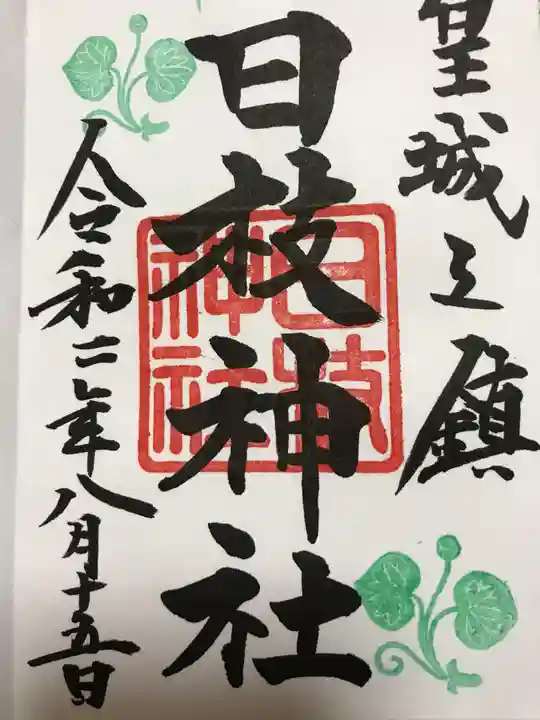 皇城之鎮
日枝神社
日枝神社
令和二年八月十五日